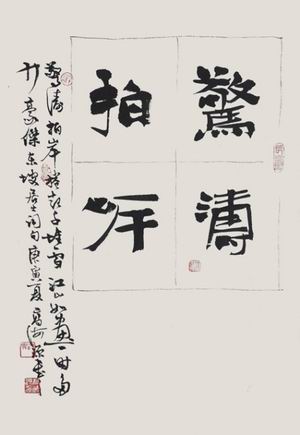 驚濤
拍岸
驚濤拍岸捲起千堆雪江山如畫一時多
少豪傑东坡居士词句庚寅夏